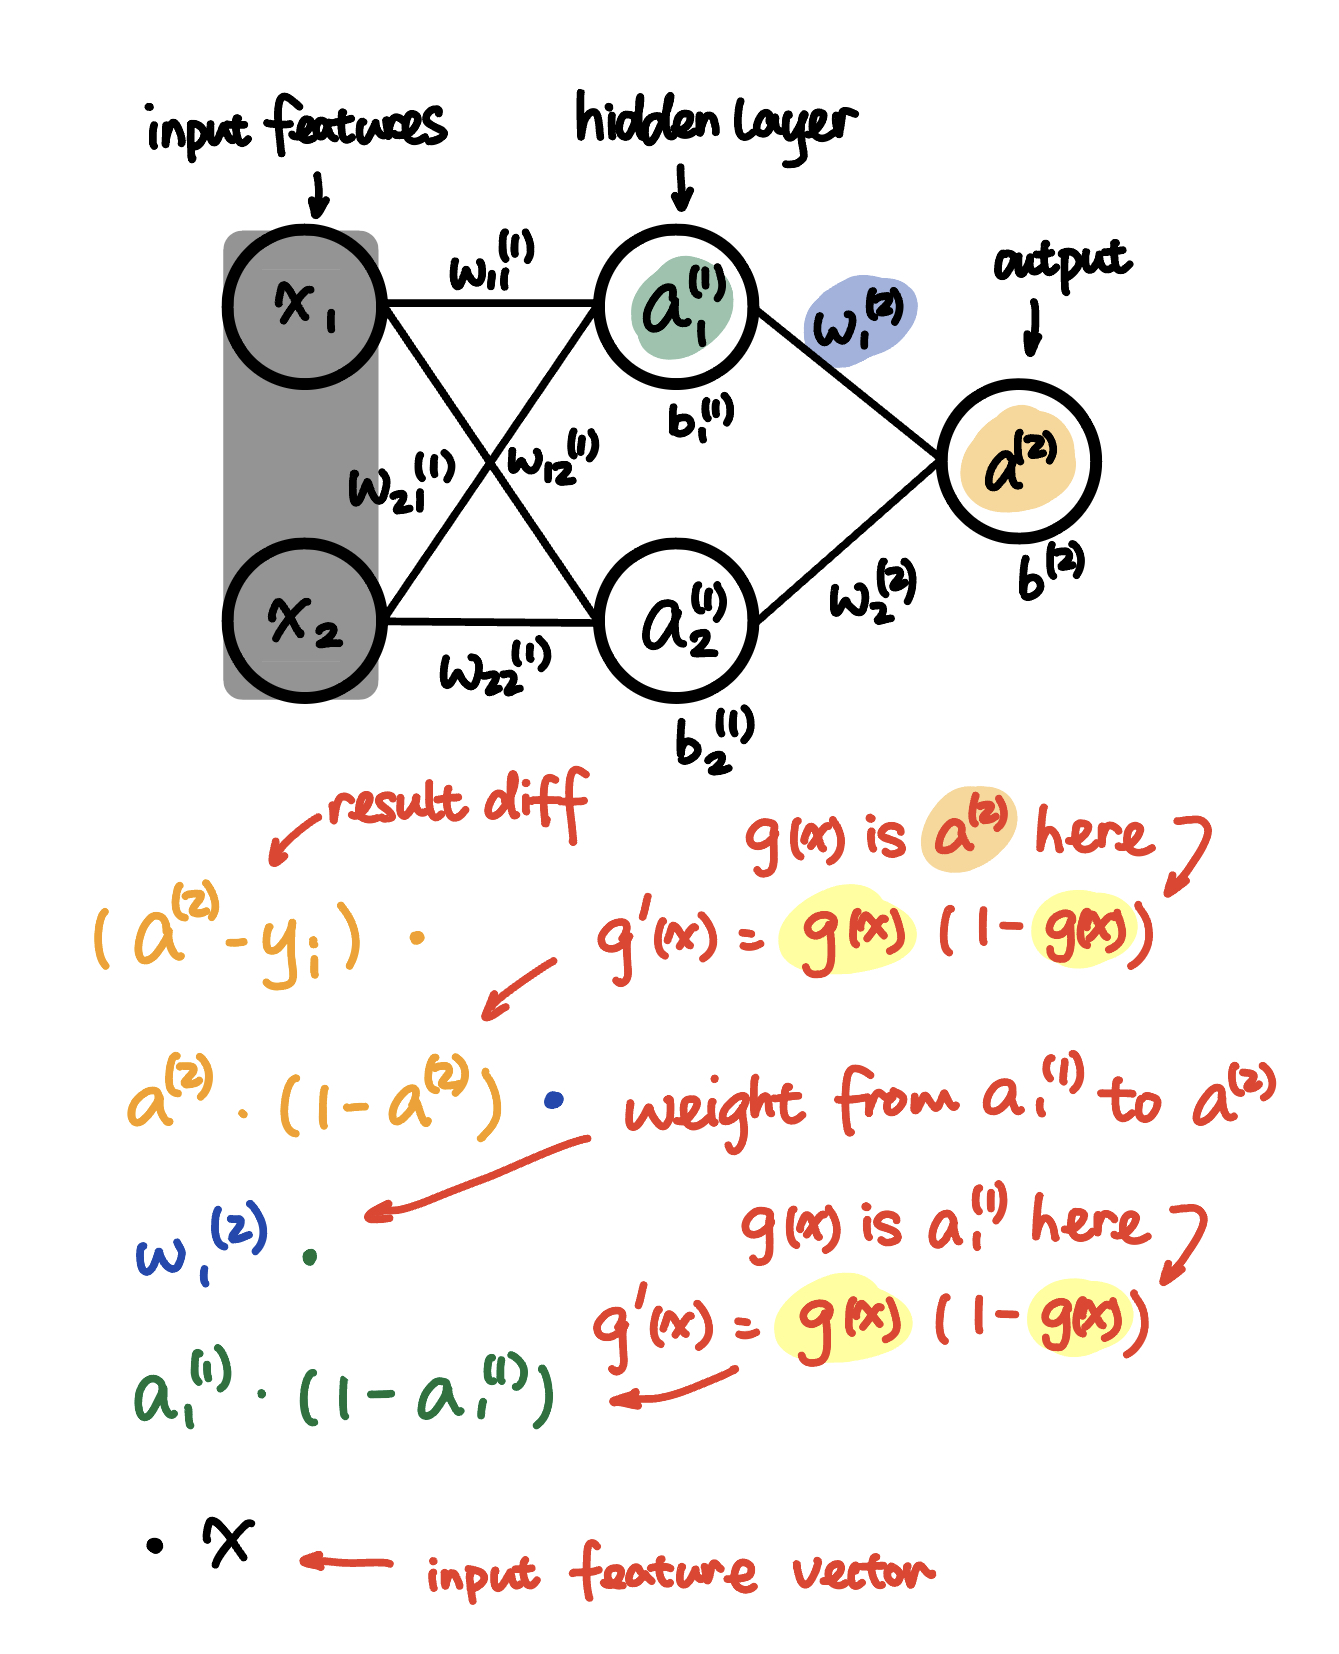 input features
hidden layer
output
x₁
w₁₁⁽¹⁾
a₁⁽¹⁾
w₁⁽²⁾
b₁⁽¹⁾
w₂₁⁽¹⁾
w₁₂⁽¹⁾
a⁽²⁾
b⁽²⁾
x₂
w₂₂⁽¹⁾
a₂⁽¹⁾
w₂⁽²⁾
b₂⁽¹⁾
result diff
g(x) is a⁽²⁾ here
(a⁽²⁾ - yᵢ) ·
g'(x) = g(x) (1 - g(x))
a⁽²⁾ · (1 - a⁽²⁾) ·
weight from a₁⁽¹⁾ to a⁽²⁾
w₁⁽²⁾ ·
g(x) is a₁⁽¹⁾ here
g'(x) = g(x) (1 - g(x))
a₁⁽¹⁾ · (1 - a₁⁽¹⁾)
· x
input feature vector